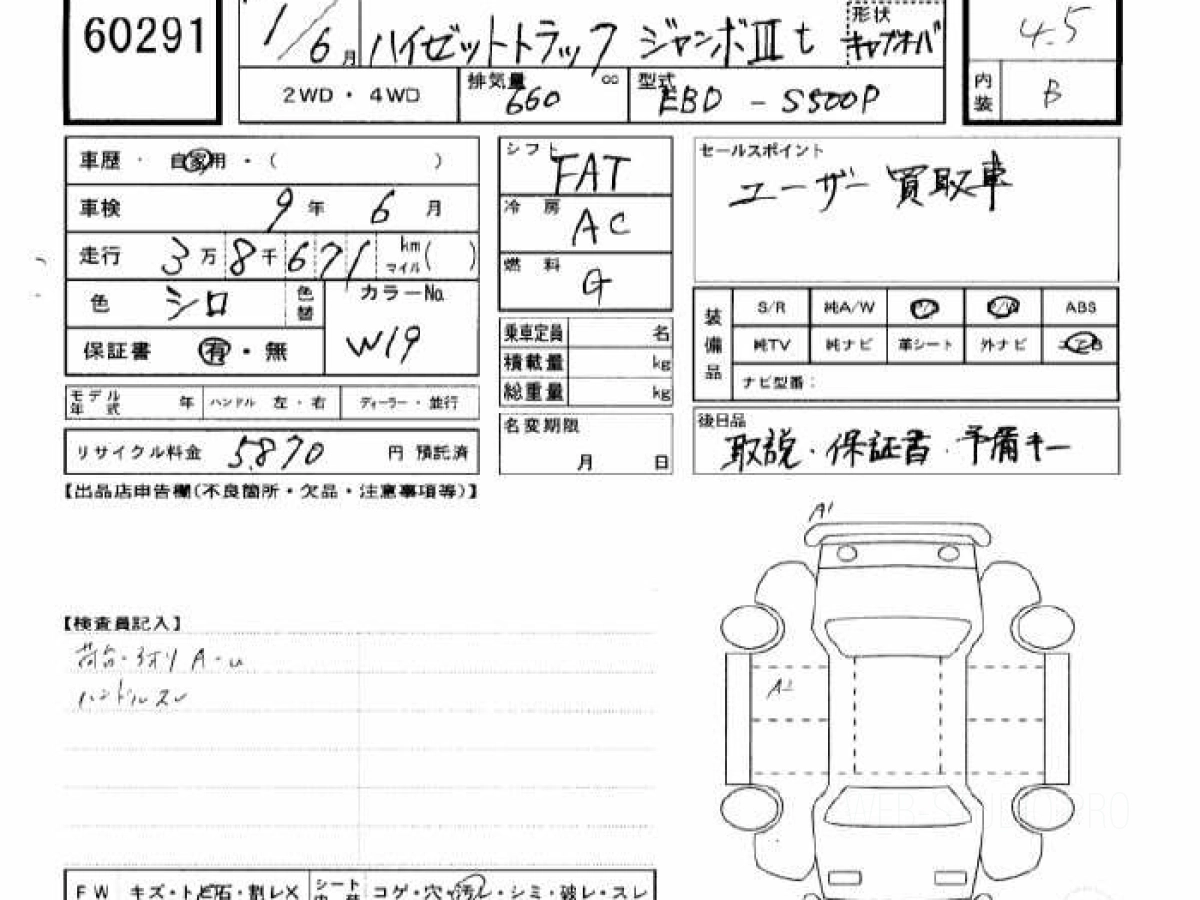 60291
1/6月 ハイゼットトラック ジャンボⅢt 形状 キャブオーバ
4.5
2WD・4WD 排気量 660 cc 型式 EBD-S500P
内装 B
車歴・自家用・( )
車検 9年 6月
走行 3万8千671 km マイル( )
色 シロ 色替 カラーNo. W19
保証書 有・無
モデル年式 年 ハンドル 左・右 ディーラー・並行
リサイクル料金 5870 円 預託済
シフト FAT
冷房 AC
燃料 G
乗車定員 名
積載量 kg
総重量 kg
名変期限
月 日
セールスポイント
ユーザー買取車
装備品
S/R 純A/W P/S P/W ABS
純TV 純ナビ 革シート 外ナビ エアB
ナビ型番:
後日品
取説・保証書・予備キー
【出品店申告欄(不良箇所・欠品・注意事項等)】
A1
【検査員記入】
荷台・アオリ A-U
ハンドルスレ
A2
FW キズ・トビ石・割レX シート コゲ・穴・汚レ・シミ・破レ・スレ